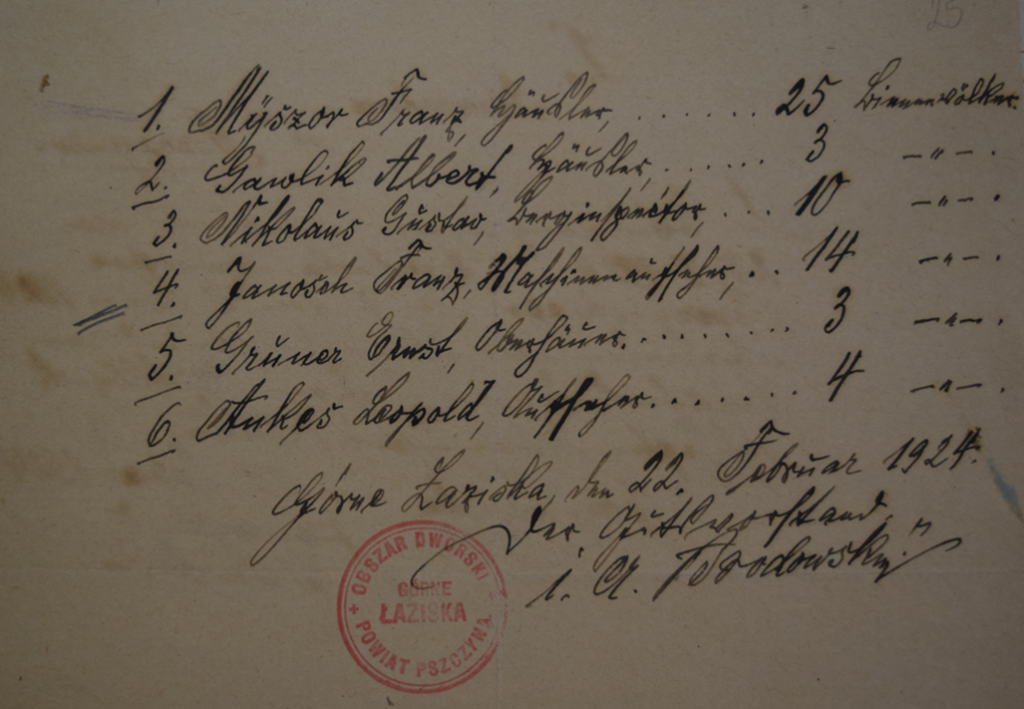 25
1. Myszor Franz, Häusler, ....... 25 Bienenvölker.
2. Gawlik Albert, Häusler, ...... 3 -"- .
3. Nikolaus Gustav, Berginspektor, ... 10 -"- .
4. Janosch Franz, Maschinenaufseher, .. 14 -"- .
5. Gruner Ernst, Oberhäuer. ........ 3 -"- .
6. Aukes Leopold, Aufseher. ....... 4 -"- .
Górne Łaziska, den 22. Februar 1924.
Der Gutsvorstand.
i. A.
OBSZAR DWORSKI
GÓRNE
ŁAZISKA
POWIAT PSZCZYNA